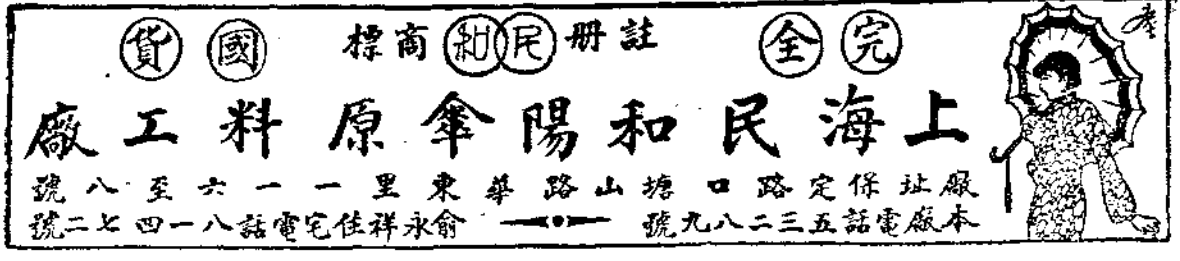 完全 註册民和商標 國貨
上海民和陽傘原料工廠
廠址保定路口塘山路華東里一一六至八號
本廠電話五三二八九號 俞永祥住宅電話八一四七二號